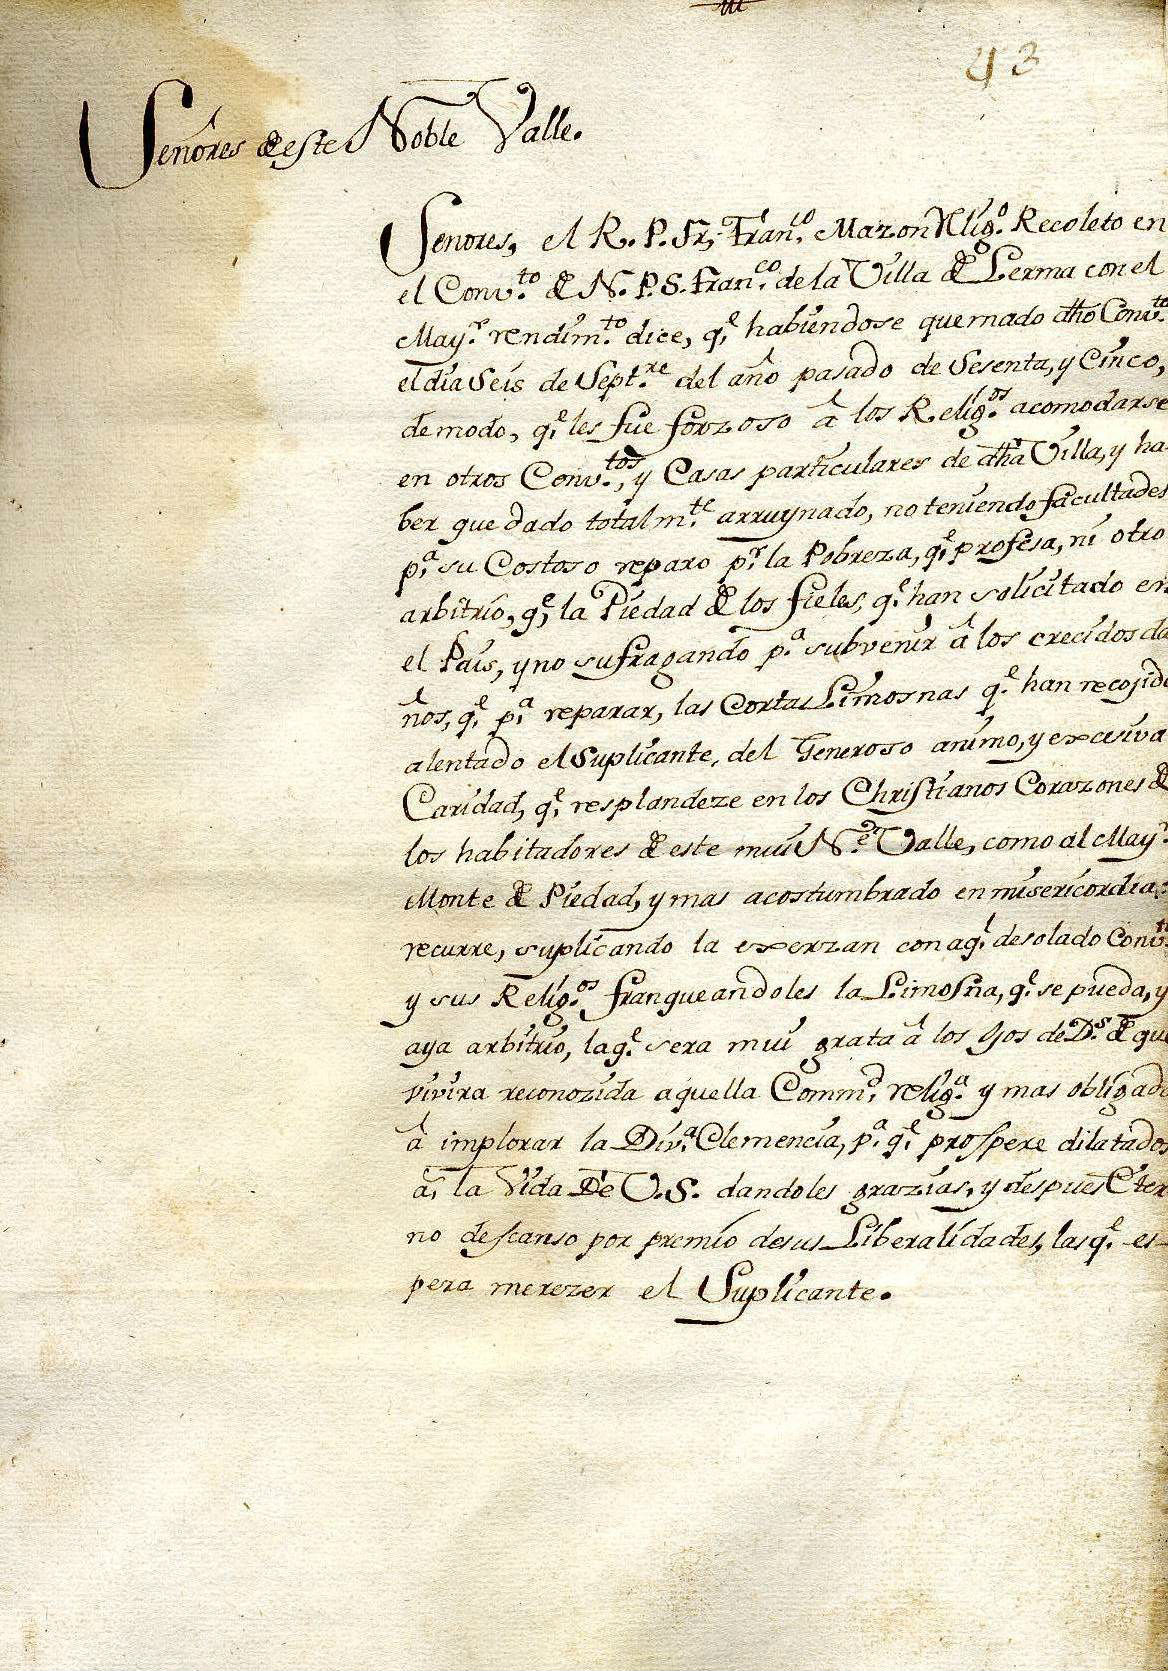 43
Señores de este Noble Valle.
Señores, el R. P. Fr. Fran.co Mazon Rlig.o Recoleto en
el Conv.to de N. P. S. Fran.co de la Villa de Lerma con el
May.r rendim.to dice, q.e habiendose quemado dho Conv.to
el dia Seis de Sept.re del año pasado de Sesenta, y Cinco,
de modo, q.e les fue forzoso â los Relig.os acomodarse
en otros Conv.tos, y Casas particulares de dha Villa, y ha-
ber quedado totalm.te arruynado, no teniendo facultades
p.a su Costoso reparo p.r la Pobreza, q.e profesa, ni otro
arbitrio, q.e la Piedad de los fieles, q.e han solicitado en
el Pais, y no sufragando p.a subvenir â los crecidos da
ños, q.e p.a reparar, las Cortas Limosnas q.e han recojido
alentado el Suplicante, del Generoso animo, y excesiva
Caridad, q.e resplandeze en los Christianos Corazones de
los habitadores de este mui N.e Valle, como al May.r
Monte de Piedad, y mas acostumbrado en misericordias
recurre, suplicando la exerzan con aq.l desolado Conv.to
y sus Relig.os franqueandoles la Limosna, q.e se pueda, y
aya arbitrio, la q.e sera mui grata â los Ojos de D.s de que
vivira reconozida aquella Comm.d relig.a y mas obligada
â implorar la Div.a Clemencia, p.a q.e prospere dilatados
a.s la Vida De V.S. dandoles grazias, y despues Eter
no descanso por premio de sus Liberalidades, las q.e es-
pera merezer el Suplicante.